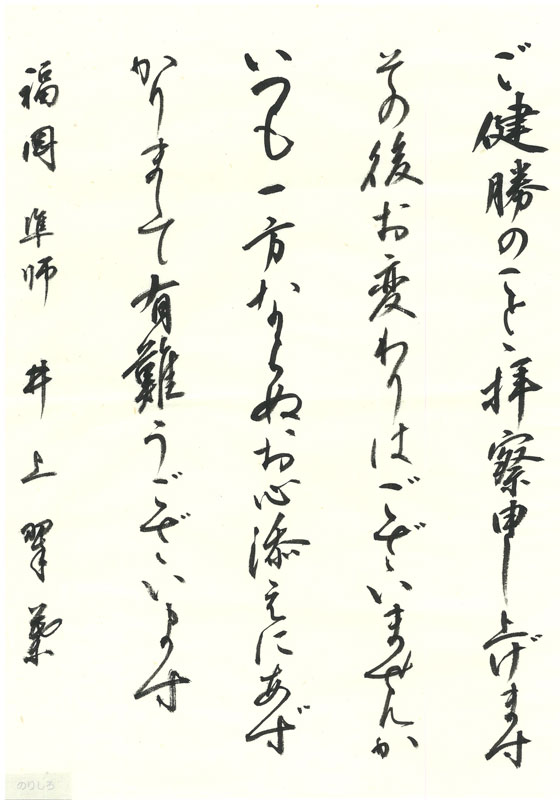 ご健勝のことゝ拝察申し上げます
その後お変わりはございませんか
いつも一方ならぬお心添えにあず
かりまして有難うございます
福岡 準師 井上翠葉
のりしろ